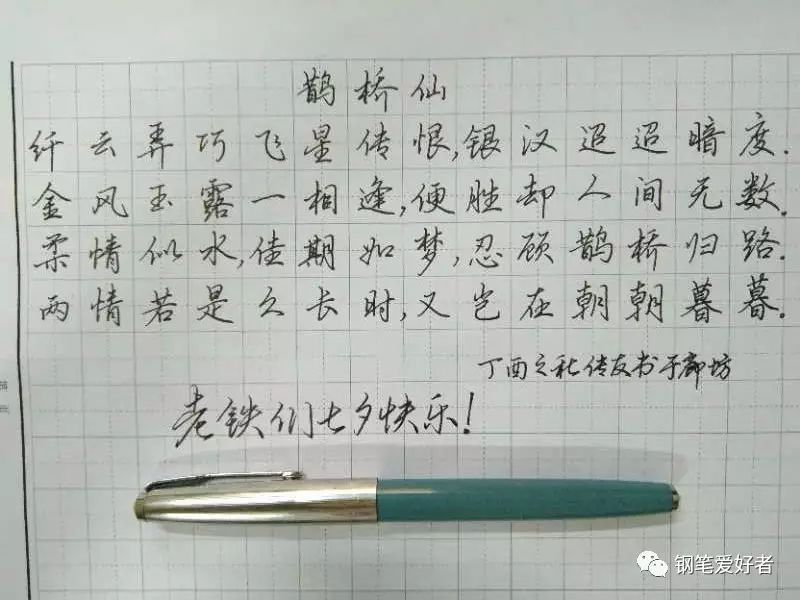 鹊桥仙
纤云弄巧飞星传恨,银汉迢迢暗度.
金风玉露一相逢,便胜却人间无数.
柔情似水,佳期如梦,忍顾鹊桥归路.
两情若是久长时,又岂在朝朝暮暮.
丁酉之秋传友书于廊坊
老铁们七夕快乐!
钢笔爱好者